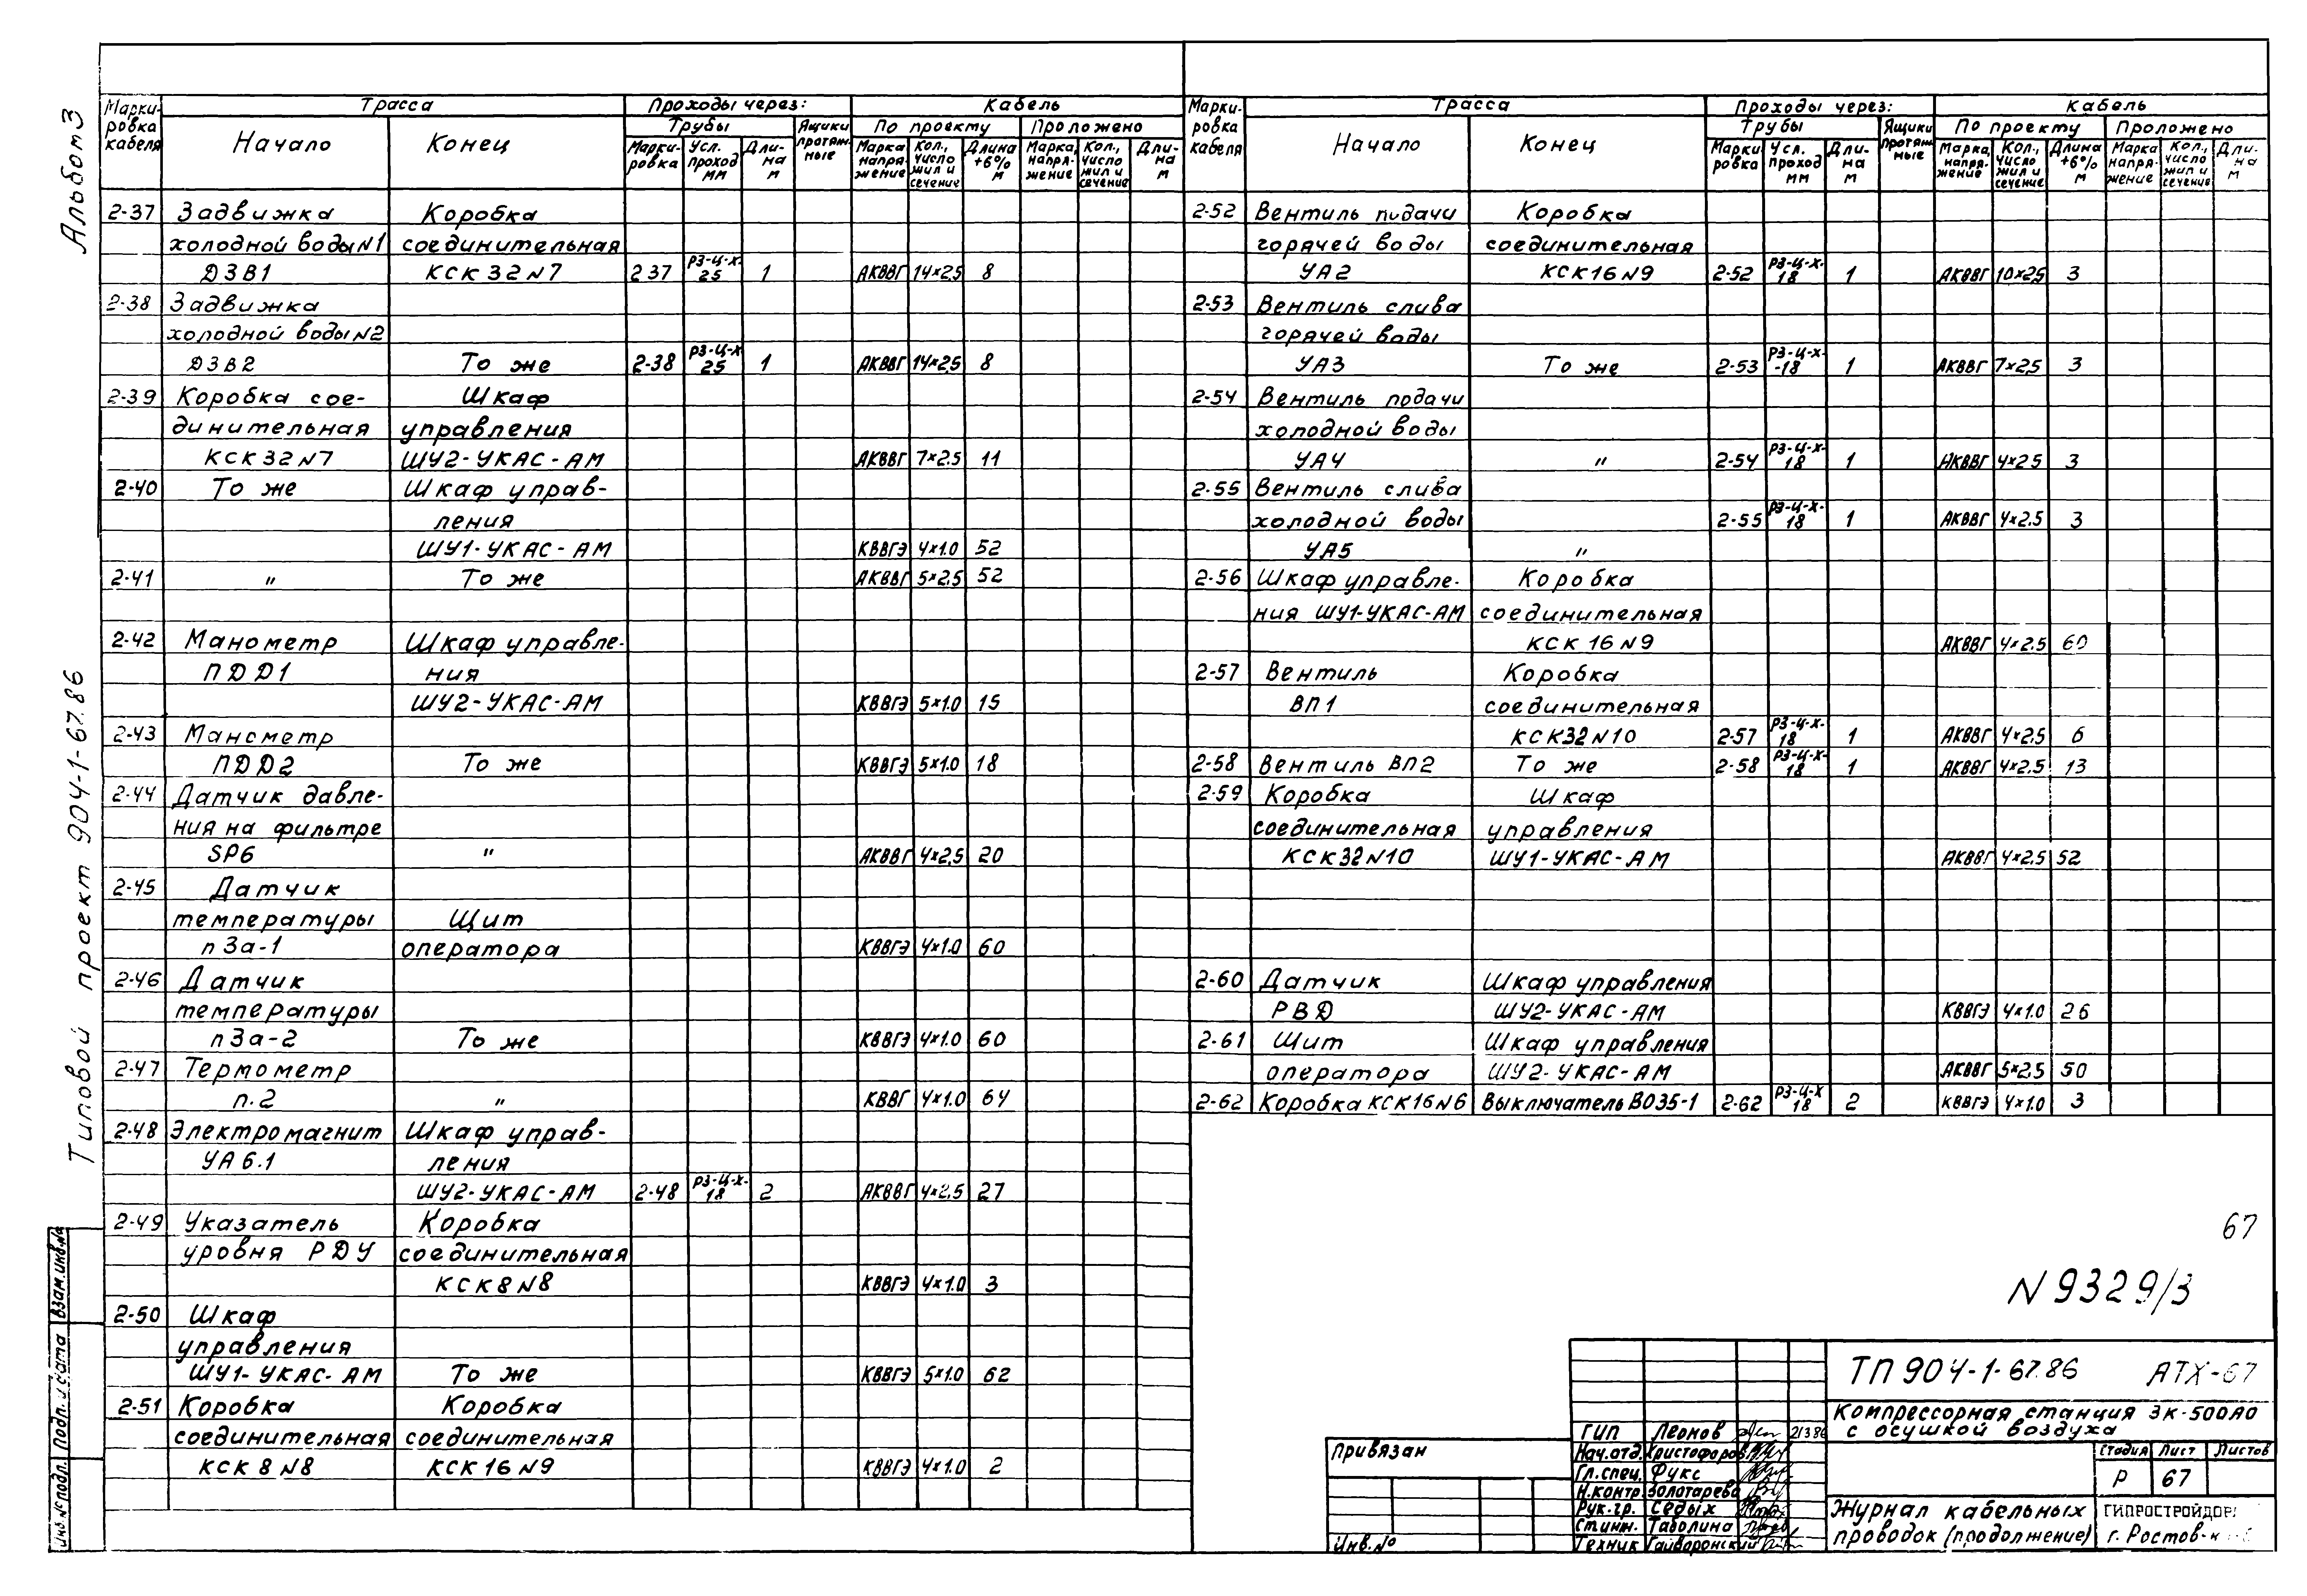 Альбом 3
Типовой проект 904-1-67.86
Взам.инв.№
Подп. и дата
Инв.№ подл.
Марки-ровка кабеля | Трасса | Проходы через: | Кабель
Начало | Конец | Трубы | Ящики протяж-ные | По проекту | Проложено
Марки-ровка | Усл. проход мм | Дли-на м | Марка напря-жение | Кол., число жил и сечение | Длина +6% м | Марка, напря-жение | Кол., число жил и сечение | Дли-на м
2-37 Задвижка Коробка
холодной воды N1 соединительная
ДЗВ1 КСК 32 N7 2 37 РЗ-Ц-Х-25 1 АКВВГ 14×2.5 8
2-38 Задвижка
холодной воды N2
ДЗВ2 То же 2-38 РЗ-Ц-Х 25 1 АКВВГ 14×2.5 8
2-39 Коробка сое- Шкаф
динительная управления
КСК 32 N7 ШУ2-УКАС-АМ АКВВГ 7×2.5 11
2-40 То же Шкаф управ-
ления
ШУ1-УКАС-АМ КВВГЭ 4×1.0 52
2-41 " То же АКВВГ 5×2.5 52
2-42 Манометр Шкаф управле-
ПДД1 ния
ШУ2-УКАС-АМ КВВГЭ 5×1.0 15
2-43 Манометр
ПДД2 То же КВВГЭ 5×1.0 18
2-44 Датчик давле-
ния на фильтре
SP6 " АКВВГ 4×2.5 20
2-45 Датчик
температуры Щит
п 3а-1 оператора КВВГЭ 4×1.0 60
2-46 Датчик
температуры
п 3а-2 То же КВВГЭ 4×1.0 60
2-47 Термометр
п.2 " КВВГ 4×1.0 64
2-48 Электромагнит Шкаф управ-
УА 6.1 ления
ШУ2-УКАС-АМ 2-48 РЗ-Ц-Х-18 2 АКВВГ 4×2.5 27
2-49 Указатель Коробка
уровня РДУ соединительная
КСК 8 N8 КВВГЭ 4×1.0 3
2-50 Шкаф
управления
ШУ1-УКАС-АМ То же КВВГЭ 5×1.0 62
2-51 Коробка Коробка
соединительная соединительная
КСК 8 N8 КСК 16 N9 КВВГЭ 4×1.0 2
Марки-ровка кабеля | Трасса | Проходы через: | Кабель
Начало | Конец | Трубы | Ящики протяж-ные | По проекту | Проложено
Марки-ровка | Усл. проход мм | Дли-на м | Марка, напря-жение | Кол., число жил и сечение | Длина +6% м | Марка напря-жение | Кол., число жил и сечение | Дли-на м
2-52 Вентиль подачи Коробка
горячей воды соединительная
УА2 КСК16 N9 2-52 РЗ-Ц-Х-18 1 АКВВГ 10×2.5 3
2-53 Вентиль слива
горячей воды
УА3 То же 2-53 РЗ-Ц-Х--18 1 АКВВГ 7×2.5 3
2-54 Вентиль подачи
холодной воды
УА4 " 2-54 РЗ-Ц-Х-18 1 АКВВГ 4×2.5 3
2-55 Вентиль слива
холодной воды 2-55 РЗ-Ц-Х-18 1 АКВВГ 4×2.5 3
УА5 "
2-56 Шкаф управле- Коробка
ния ШУ1-УКАС-АМ соединительная
КСК 16 N9 АКВВГ 4×2.5 60
2-57 Вентиль Коробка
ВП1 соединительная
КСК32 N10 2-57 РЗ-Ц-Х-18 1 АКВВГ 4×2.5 6
2-58 Вентиль ВП2 То же 2-58 РЗ-Ц-Х-18 1 АКВВГ 4×2.5 13
2-59 Коробка Шкаф
соединительная управления
КСК32 N10 ШУ1-УКАС-АМ АКВВГ 4×2.5 52
2-60 Датчик Шкаф управления
РВД ШУ2-УКАС-АМ КВВГЭ 4×1.0 26
2-61 Щит Шкаф управления
оператора ШУ2-УКАС-АМ АКВВГ 5×2.5 50
2-62 Коробка КСК16 N6 Выключатель ВО35-1 2-62 РЗ-Ц-Х 18 2 КВВГЭ 4×1.0 3
67
N 9329/3
Привязан
Инв.№
ГИП Леонов 21386
Нач.отд. Христофоров
Гл.спец. Фукс
Н.контр. Золотарева
Рук.гр. Седых
Ст.инж. Таболина
Техник Гайворонский
ТП 904-1-67.86 АТХ-67
Компрессорная станция 3К-500А0
с осушкой воздуха
Стадия Лист Листов
Р 67
Журнал кабельных
проводок (продолжение)
ГИПРОСТРОЙДОР
г. Ростов-н